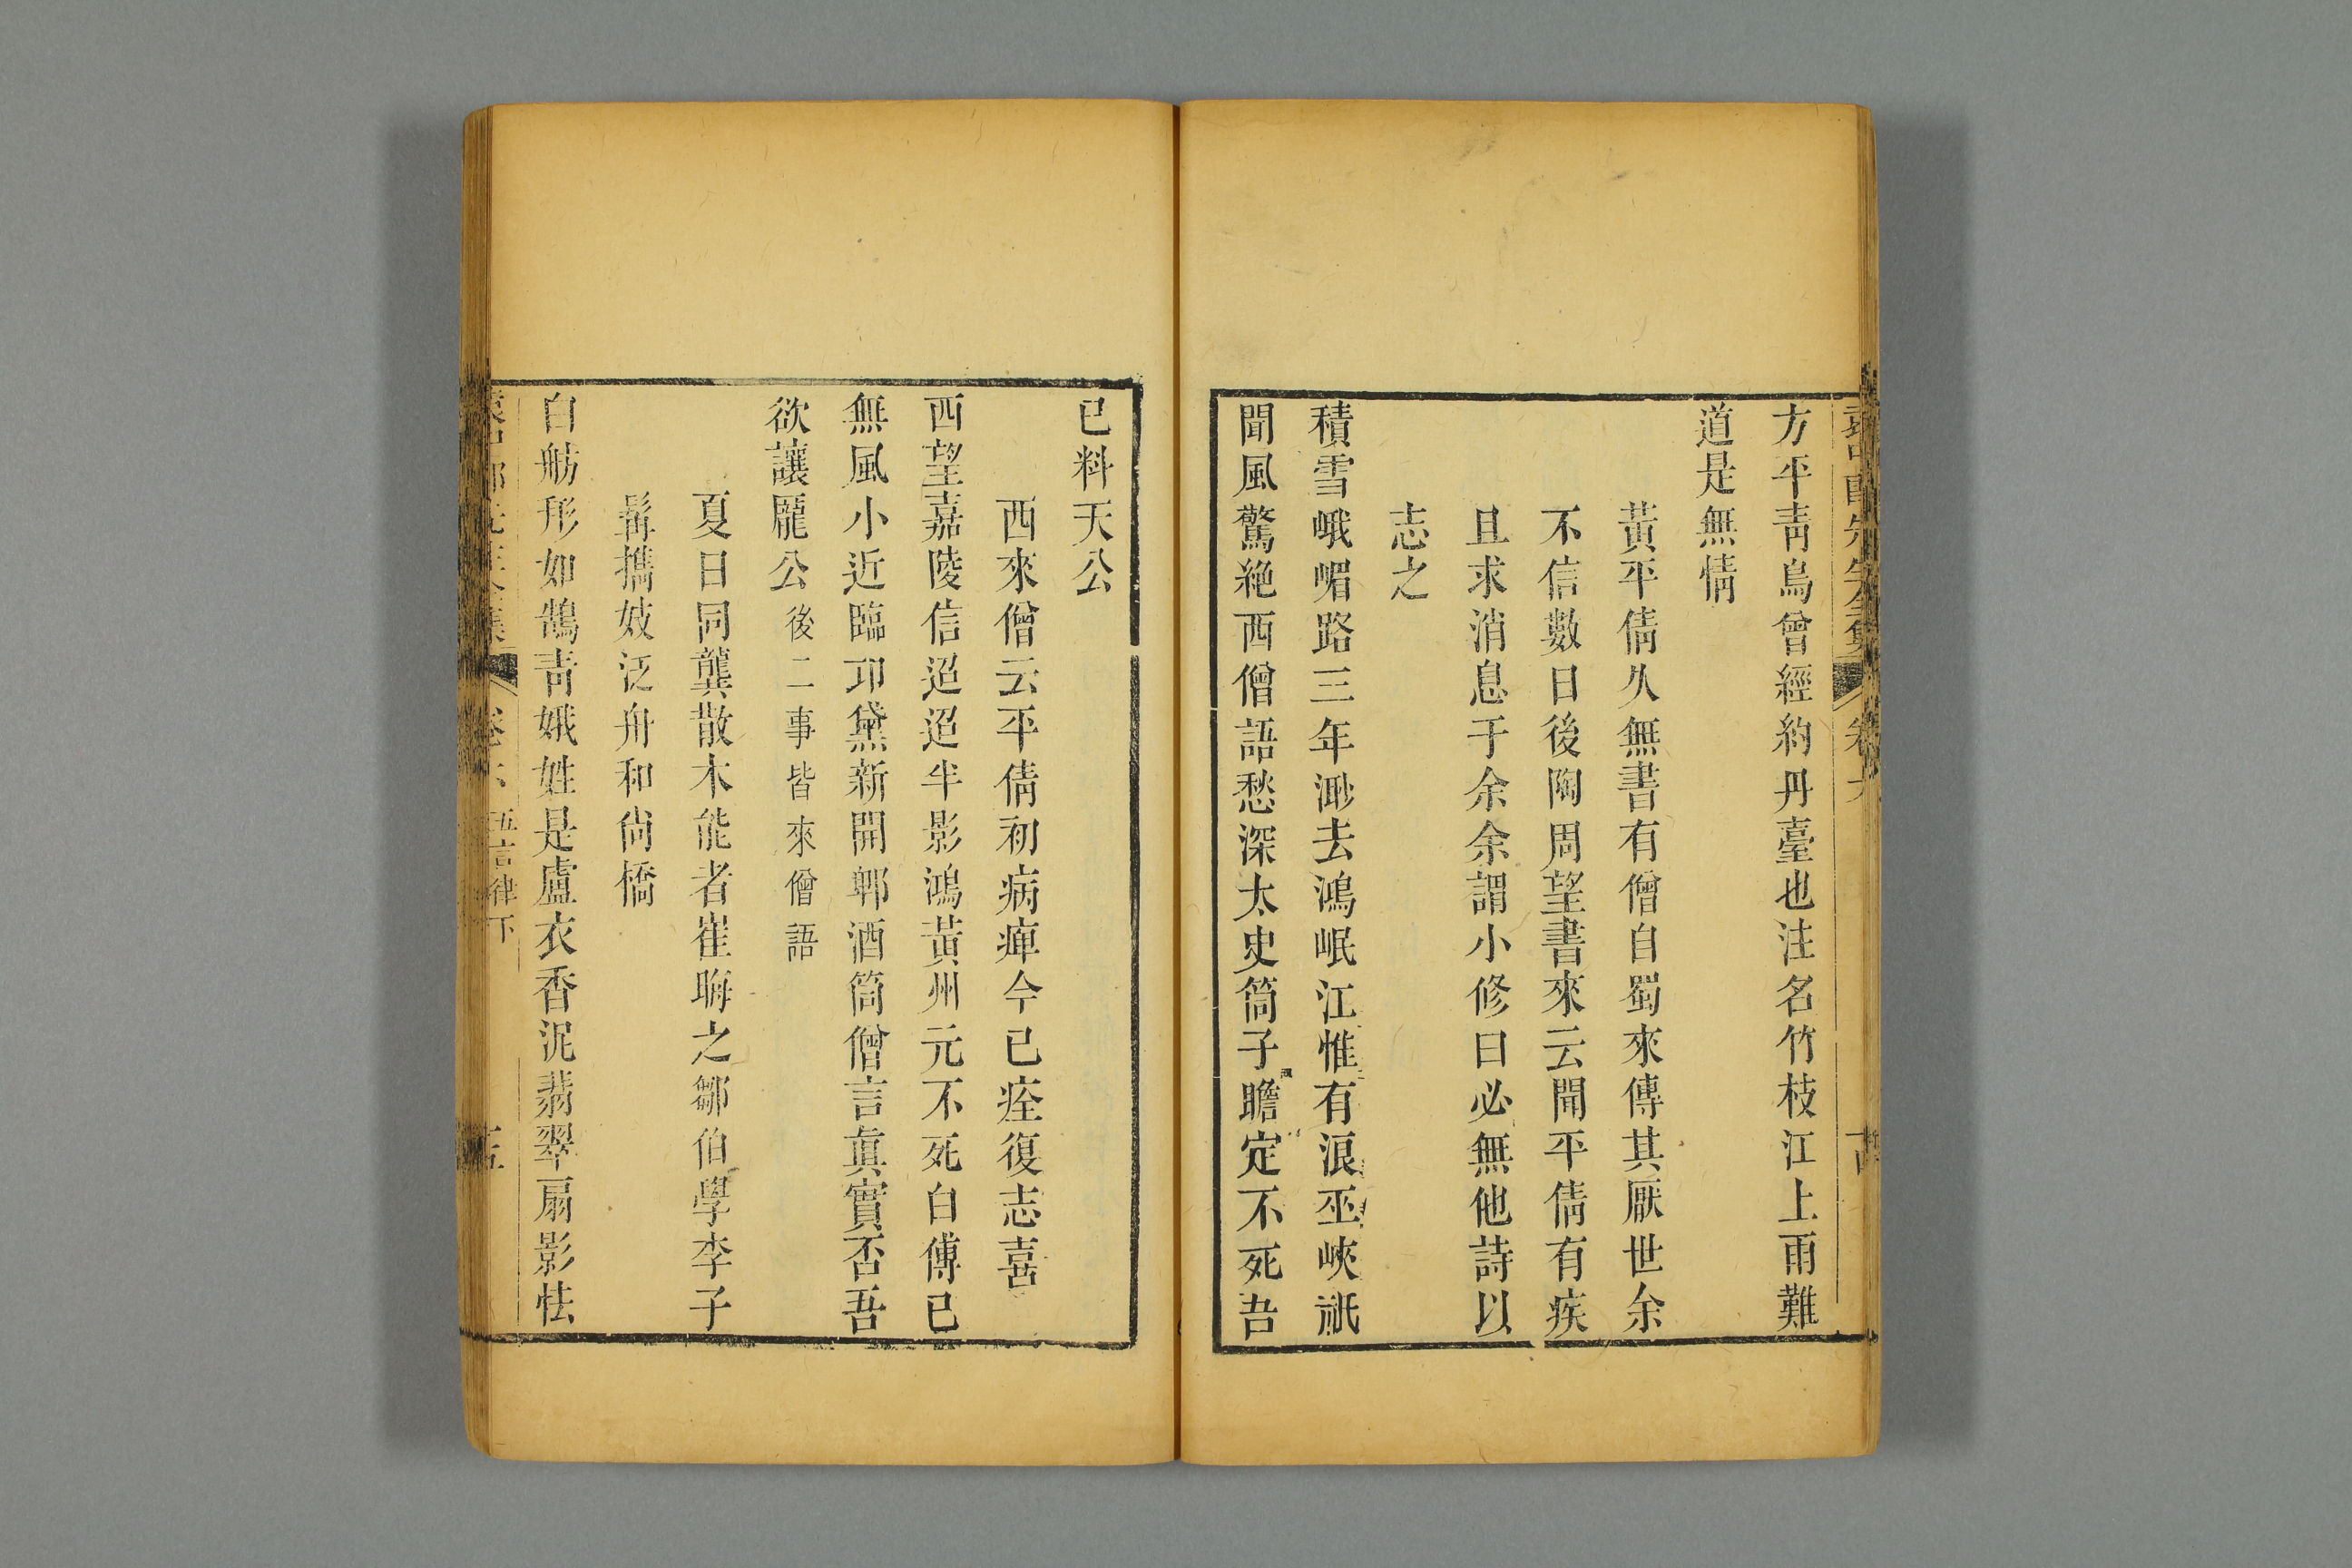 方平靑鳥曾經約丹臺也注名竹枝江上雨難
道是無情
黃平倩久無書有僧自蜀來傳其厭世余
不信數日後陶周望書來云聞平倩有疾
且求消息于余余謂小修曰必無他詩以
志之
積雪峨嵋路三年渺去鴻岷江惟有浪巫峽祇
聞風驚絶西僧語愁深太史筒子瞻定不死吾
已料天公
西來僧云平倩初病痺今已痊復志喜
西望嘉陵信迢迢半影鴻黃州元不死白傅已
無風小近臨卭黛新開郫酒筒僧言眞實否吾
欲讓龐公後二事皆來僧語
夏日同龔散木能者崔晦之鄒伯學李子
髯攜妓泛舟和尙橋
白舫形如鵠靑娥姓是盧衣香泥翡翠扇影怯
卷六 五言律下